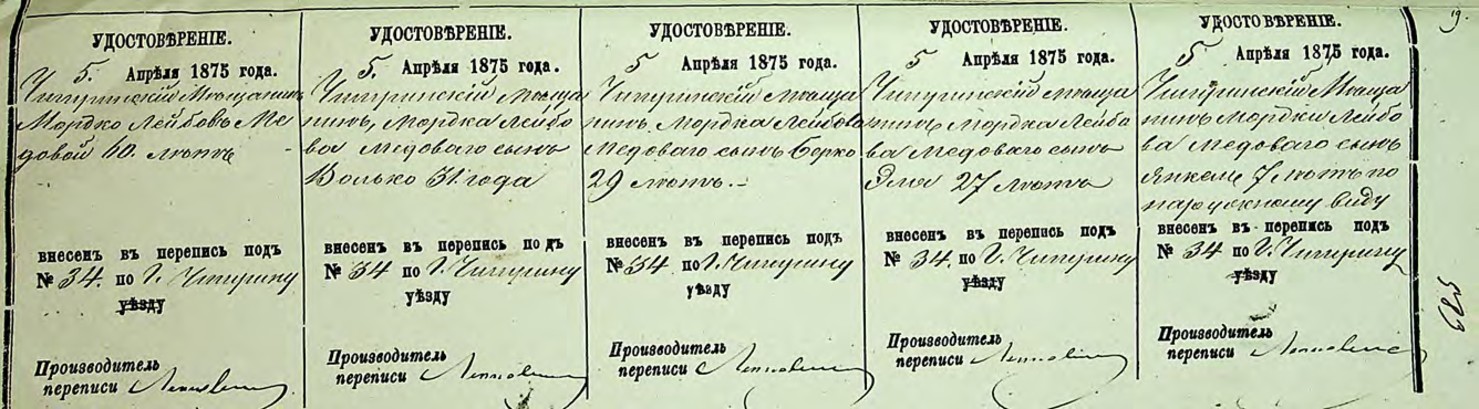 19.
УДОСТОВѢРЕНІЕ.
5. Апрѣля 1875 года.
Чигиринскій Мѣщанинъ
Мордко Лейбовъ Ме
довой 60. лѣтъ
внесенъ въ перепись подъ
№ 34. по г. Чигирину
уѣзду
Производитель
переписи
УДОСТОВѢРЕНІЕ.
5. Апрѣля 1875 года.
Чигиринскій мѣща
нинъ, Мордка Лейбо
ва Медоваго сынъ
Волько 31. года
внесенъ въ перепись подъ
№ 34 по г. Чигирину
уѣзду
Производитель
переписи
УДОСТОВѢРЕНІЕ.
5 Апрѣля 1875 года.
Чигиринскій мѣща
нинъ Мордка Лейбова
Медоваго сынъ Берко
29 лѣтъ. -
внесенъ въ перепись подъ
№ 34 по г. Чигирину
уѣзду
Производитель
переписи
УДОСТОВѢРЕНІЕ.
5 Апрѣля 1875 года.
Чигиринскій мѣща
нинъ Мордка Лейбо
ва Медоваго сынъ
Эля 27 лѣтъ
внесенъ въ перепись подъ
№ 34. по г. Чигирину
уѣзду
Производитель
переписи
УДОСТОВѢРЕНІЕ.
5 Апрѣля 1875 года.
Чигиринскій Мѣща
нинъ Мордки Лейбо
ва Медоваго сынъ
Янкель 7 лѣтъ по
наружному виду
внесенъ въ перепись подъ
№ 34 по г. Чигирину
уѣзду
Производитель
переписи